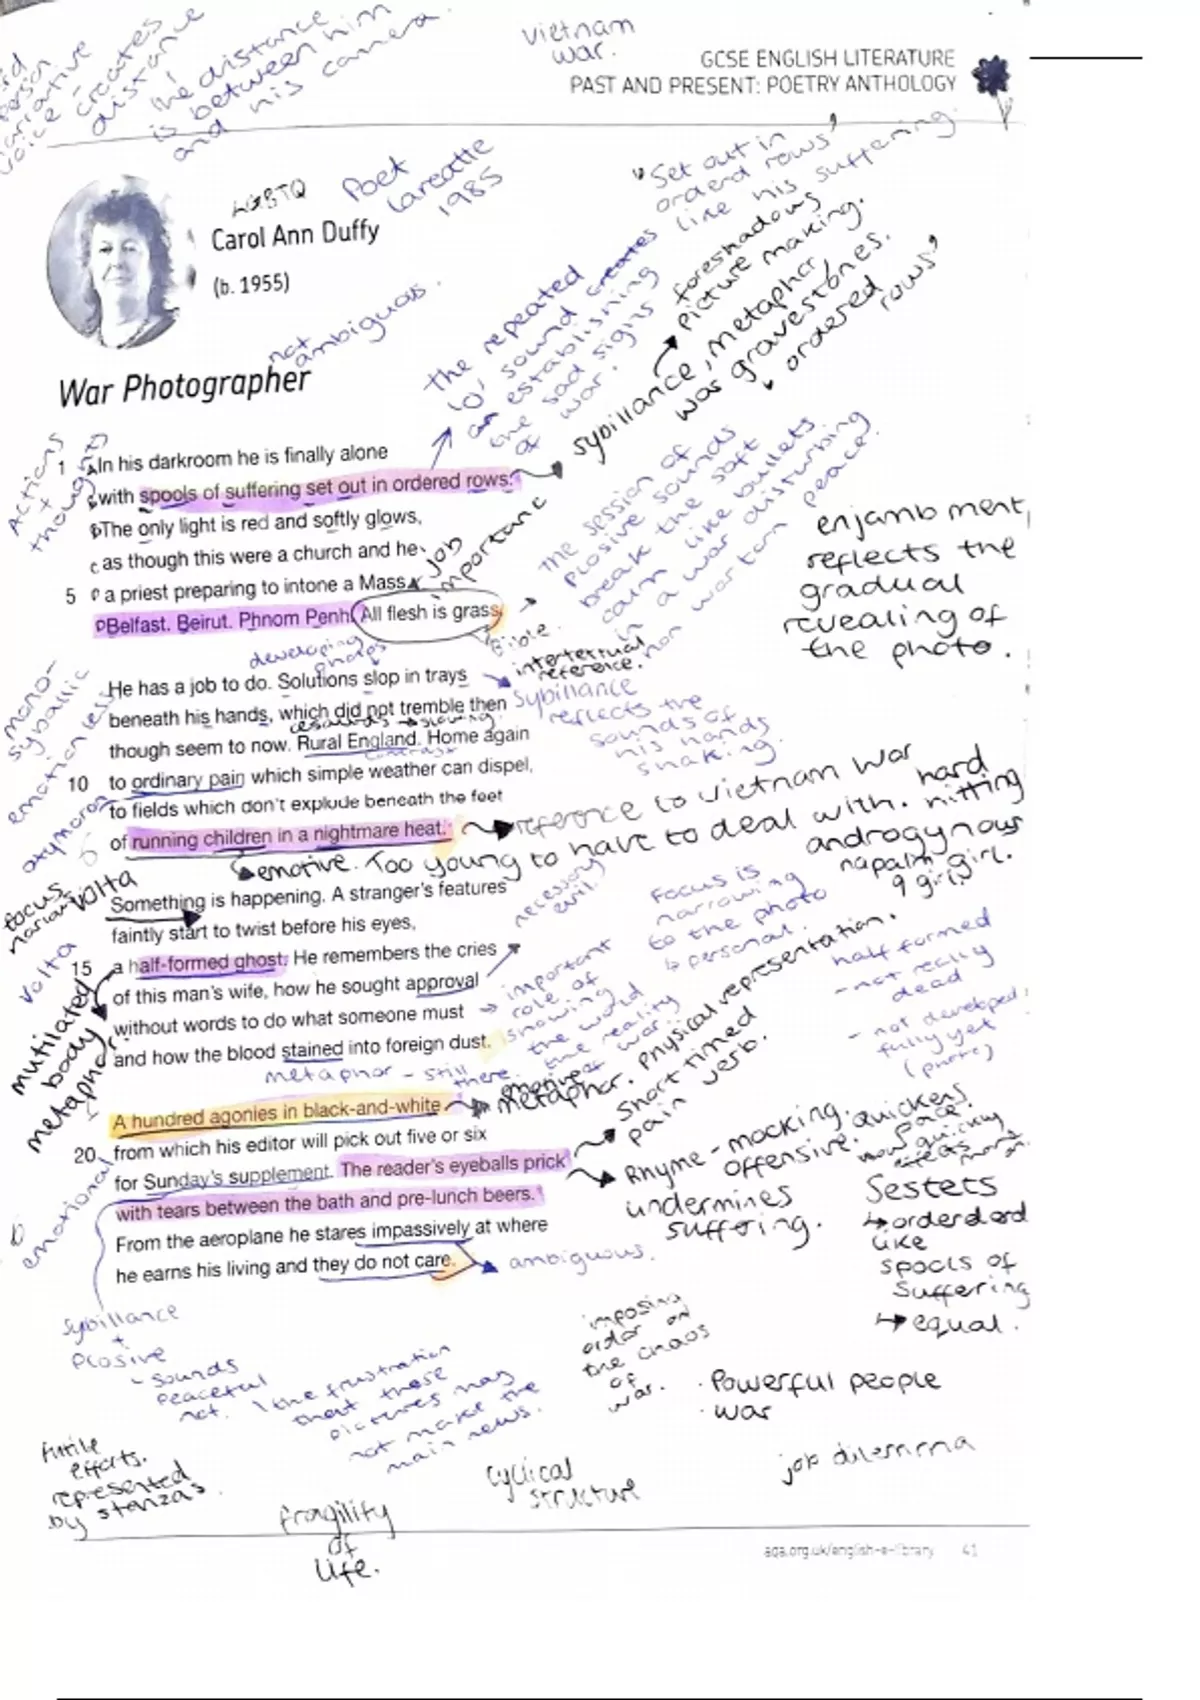 3rd
person
narrative
voice creates
distance
the distance
is between him
and his camera.
Vietnam
war.
GCSE ENGLISH LITERATURE
PAST AND PRESENT: POETRY ANTHOLOGY
LGBTQ
Poet
Lareatte
1985
Carol Ann Duffy
(b. 1955)
"Set out in
orderd rows"
like his suffering.
foreshadows
picture making.
sybillance, metaphor,
war gravestones.
ordered
rows"
the repeated
'o' sound creates
an establishing
the sad signs
of war.
not
ambiguous.
War Photographer
Actions
+
thoughts
1 A In his darkroom he is finally alone
with spools of suffering set out in ordered rows.
B The only light is red and softly glows,
C as though this were a church and he
5 a priest preparing to intone a Mass.
D Belfast. Beirut. Phnom Penh. All flesh is grass.
job
importanc
Bible.
intertextual
reference.
the session of
plosive sounds
break the soft
calm like bullets
in a war disturbing
war torn peace.
enjambment
reflects the
gradual
revealing of
the photo.
developing
photos
mono-
syballic
emotionless
He has a job to do. Solutions slop in trays
beneath his hands, which did not tremble then
though seem to now. Rural England. Home again
contrast
10 to ordinary pain which simple weather can dispel,
to fields which don't explode beneath the feet
of running children in a nightmare heat.
Sybillance
reflects the
sounds of
his hands
shaking.
oxymoron
reference to vietnam war
hard
hitting
emotive. Too young to have to deal with.
androgynous
napalm girl.
9 girl.
focus
volta
Something is happening. A stranger's features
faintly start to twist before his eyes,
15 a half-formed ghost. He remembers the cries
of this man's wife, how he sought approval
without words to do what someone must
and how the blood stained into foreign dust.
volta
mutilated
body
metaphor
necessary
evil.
Focus is
narrowing
to the photo
↳ personal.
important
role of
showing
the world
the reality
of war.
half formed
- not really
dead
- not developed
fully yet
(photo)
metaphor - still
there.
A hundred agonies in black-and-white
20 from which his editor will pick out five or six
for Sunday's supplement. The reader's eyeballs prick
with tears between the bath and pre-lunch beers.
From the aeroplane he stares impassively at where
he earns his living and they do not care.
emotive
metaphor. Physical representation.
Short timed
pain verb.
Rhyme - mocking.
offensive.
undermines
suffering.
quickens
pace.
how quickly
ambiguous.
emotional
Sestets
↳ orderd ord
like
spools of
suffering
↳ equal.
Sybillance
+
plosive
- sounds
peaceful
not.
the frustration
that these
pictures may
not make the
main news.
imposing
order on
the chaos
of
war.
· Powerful people
· war
futile
efforts.
represented
by stanzas.
fragility
of
life.
cyclical
structure
job dilemma
aqa.org.uk/english-e-library 41